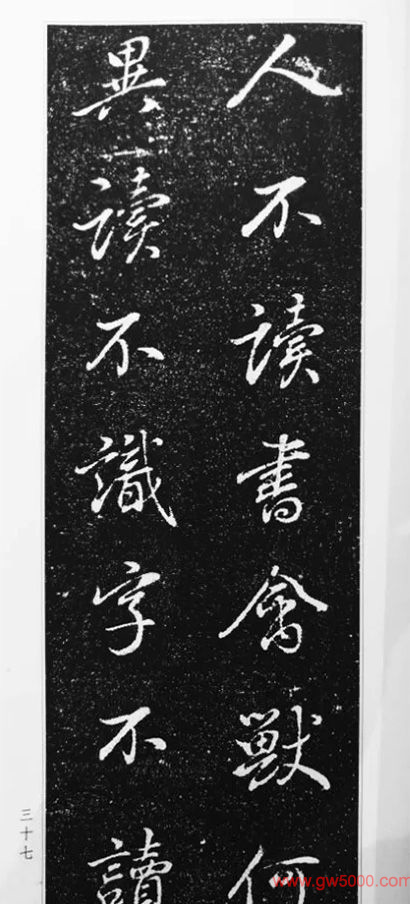 人不讀書禽獸何
異讀不識字不讀
三十七
www.gw5000.com